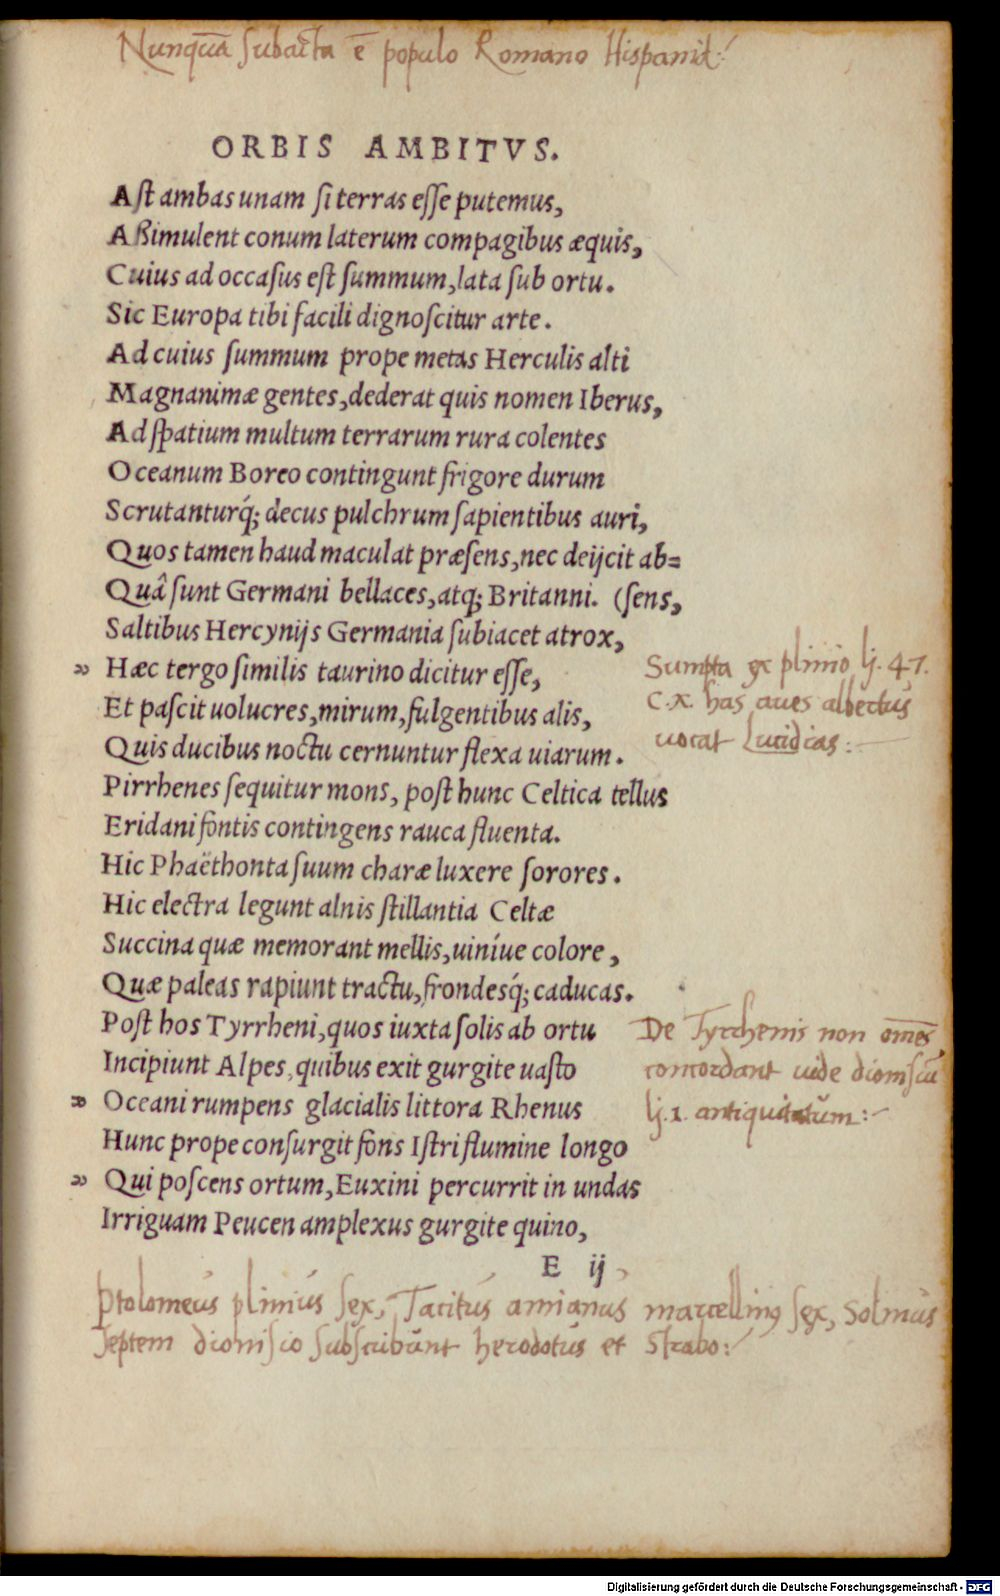 Nunquã subacta ē populo Romano Hispania:/
ORBIS AMBITVS.
Aſt ambas unam ſi terras eſſe putemus,
Aßimulent conum laterum compagibus æquis,
Cuius ad occaſus eſt ſummum, lata ſub ortu.
Sic Europa tibi facili dignoſcitur arte.
Ad cuius ſummum prope metas Herculis alti
Magnanimæ gentes, dederat quis nomen Iberus,
Ad ſpatium multum terrarum rura colentes
Oceanum Boreo contingunt frigore durum
Scrutanturq́; decus pulchrum ſapientibus auri,
Quos tamen haud maculat præſens, nec deijcit ab=
Quâ ſunt Germani bellaces, atq; Britanni. (ſens,
Saltibus Hercynijs Germania ſubiacet atrox,
Hæc tergo ſimilis taurino dicitur eſſe,
Et paſcit uolucres, mirum, fulgentibus alis,
Quis ducibus noctu cernuntur flexa uiarum.
Pirrhenes ſequitur mons, poſt hunc Celtica tellus
Eridani fontis contingens rauca fluenta.
Hic Phaëthonta ſuum charæ luxere ſorores.
Hic electra legunt alnis ſtillantia Celtæ
Succina quæ memorant mellis, uiníue colore,
Quæ paleas rapiunt tractu, frondesq́; caducas.
Poſt hos Tyrrheni, quos iuxta ſolis ab ortu
Incipiunt Alpes, quibus exit gurgite uaſto
Oceani rumpens glacialis littora Rhenus
Hunc prope conſurgit fons Iſtri flumine longo
Qui poſcens ortum, Euxini percurrit in undas
Irriguam Peucen amplexus gurgite quino,
E ij
Sumpta ex plinio lj. 47.
C. X. has aues albertus
uocat Lucidias:
De Tyrrhenis non oms̄
concordant uide dionisiũ
lj. 1. antiquitatum:
Ptolomeus plinius sex, Tacitus amianus marcellinus sex, Solinus
septem dionisio subscribunt herodotus et Strabo:/
Digitalisierung gefördert durch die Deutsche Forschungsgemeinschaft - DFG